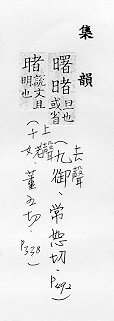 集韻
曙暏旦也或省
(去聲九御·常恕切·P492)
暏說文且明也
(上聲十姥·董五切·P338)